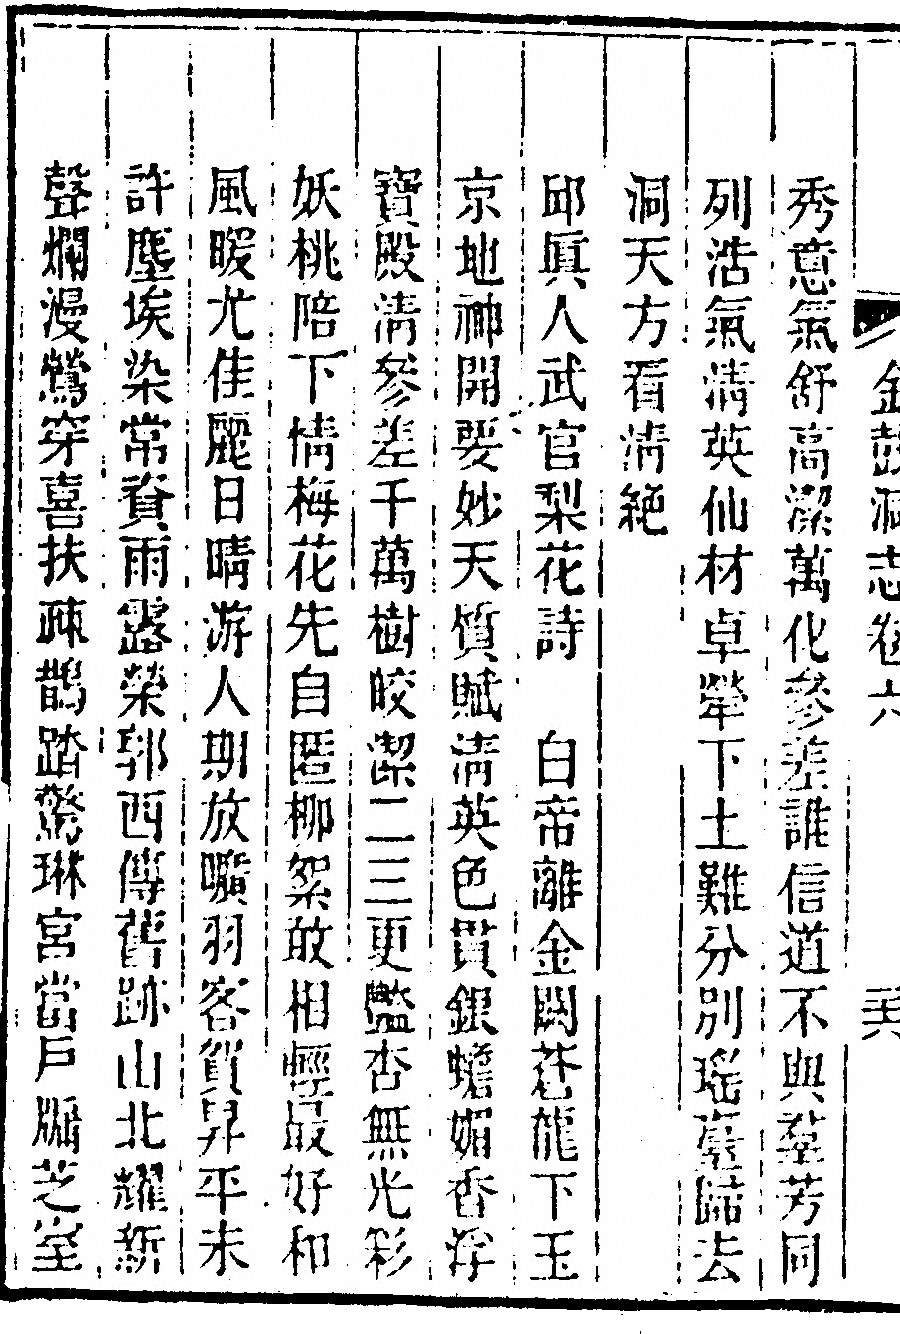 金鼓洞志卷六
秀意氣舒高潔萬化參差誰信道不與羣芳同
列浩氣淸英仙材卓犖下土難分別瑤臺歸去
洞天方看淸絶
邱眞人武官梨花詩　白帝離金闕蒼龍下玉
京地神開要妙天質賦淸英色貫銀蟾媚香浮
寶殿淸參差千萬樹皎潔二三更豔杏無光彩
妖桃陪下情梅花先自匿柳絮敢相輕最好和
風暖尤佳麗日晴游人期放曠羽客賀昇平未
許塵埃染常資雨露榮郭西傳舊跡山北耀新
聲爛漫鶯穿喜扶疎鵲踏驚琳宮當戶牖芝室